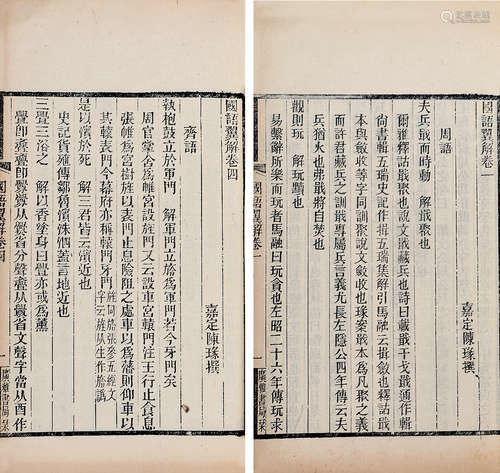 國語翼解卷一
嘉定陳瑑撰
周語
夫兵戢而時動 解戢聚也
爾雅釋詁戢聚也說文戢藏兵也詩曰載戢干戈戢通作輯
尙書輯五瑞史記作揖五瑞集解引馬融云揖斂也釋詁戢
本與斂收等字同訓聚說文斂收也瑑案戢爲凡聚之義
而許君藏兵之訓戢專屬兵言義尤長左隱公四年傳云夫
兵猶火也弗戢將自焚也
觀則玩 解玩黷也
易繫辭所樂而玩者馬融曰玩貪也左昭二十六年傳玩求
國語翼解卷一
一
廣雅書局栞
國語翼解卷四
嘉定陳瑑撰
齊語
執枹鼓立於軍門 解軍門立旍爲軍門若今牙門矣
周官掌舍爲帷宮設旌門又云設車宮轅門注王行止食息
張帷爲宮樹旌以表門止息險阻之處車以爲藩則仰車以
其轅表門今幕府亦稱轅門牙門旌同旍張參五經文字云旌从生作旍譌
是以濱於死 解三君皆云濱近也
史記貨殖傳鄒魯濱洙泗蓋言地近也
三釁三浴之 解以香塗身曰釁亦或爲薰
釁卽釁从爨省分聲从爨省文聲字當从酉作
國語翼解卷四
一
廣雅書局栞